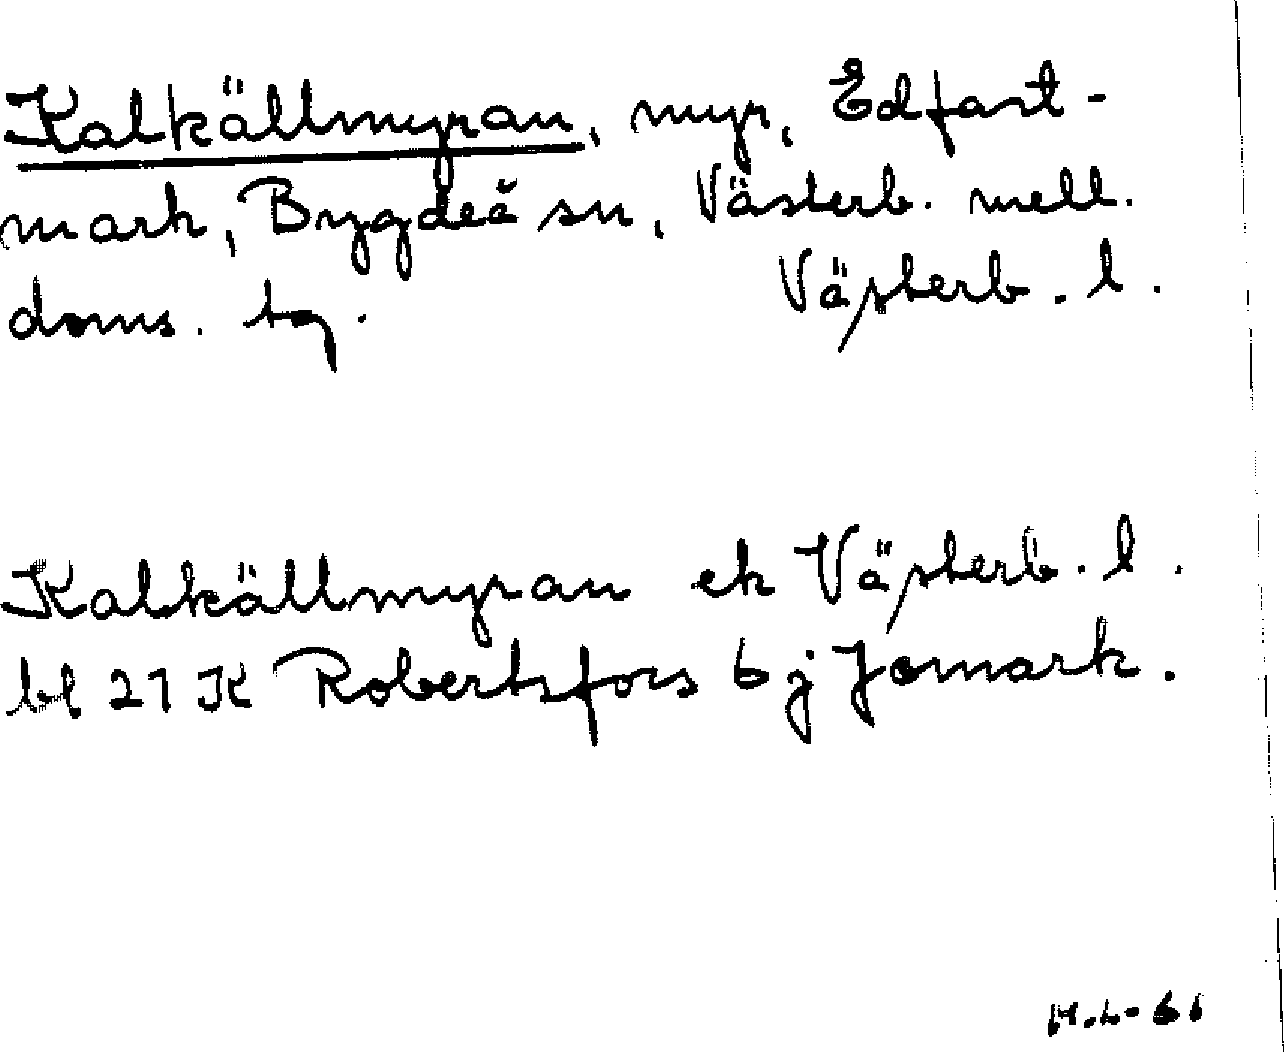 Kalkällmyran, myr, Edfast-
mark, Bygdeå sn, Västerb. mell.
doms. tg. Västerb. l.
Kalkällmyran ek Västerb. l.
bl 21 K Robertsfors 6 j Jomark.